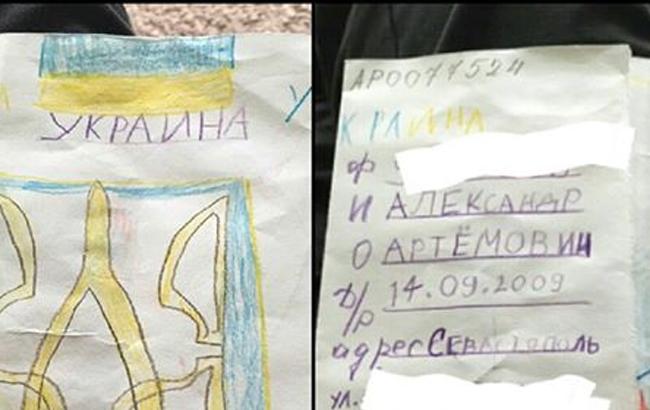 УКРАИНА
У
АР0077524
КРАИНА
Ф
И АЛЕКСАНДР
О АРТЁМОВИЧ
д/р 14.09.2009
адрес СЕВАСТОПОЛЬ
ул.